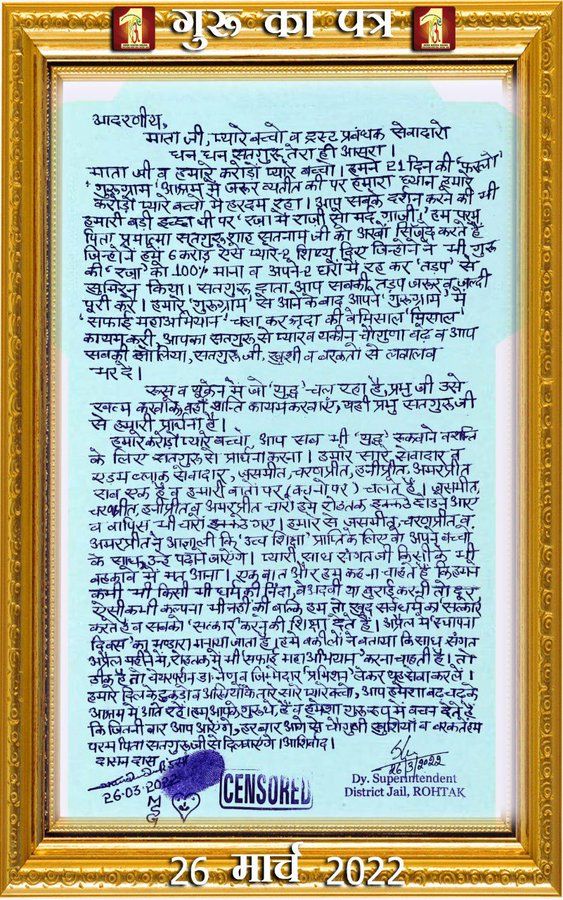 गुरु का पत्र
आदरणीय,
माता जी, प्यारे बच्चो व ट्रस्ट प्रबंधक सेवादारो
धन, धन सतगुरु तेरा ही आसरा।
माता जी व हमारे करोड़ों प्यारे बच्चो। हमने 21 दिन की 'फरलो'
'गुरुग्राम' आश्रम में जरूर व्यतीत की पर हमारा ध्यान हमारे
करोड़ों प्यारे बच्चो में हरदम रहा। आप सबके दर्शन करने की भी
हमारी बड़ी इच्छा थी पर 'रजा में राजी सो मर्द गाजी।' हम परम
पिता प्रमात्मा सतगुरु शाह सतनाम जी को अरबों सिजूद करते हैं
जिन्होंने हमें 6 करोड़ ऐसे प्यारे-2 शिष्य दिए जिन्होंने भी गुरु
की 'रजा' को 100% माना व अपने-2 घरों में रह कर 'तड़प' से
सुमिरन किया। सतगुरु दाता आप सबकी तड़प जरूर व जल्दी
पूरी करे। हमारे 'गुरुग्राम' से आने के बाद आपने 'गुरुग्राम' में
'सफाई महाअभियान' चला कर श्रद्धा की बेमिसाल 'मिसाल'
कायम करी, आपका सतगुरु से प्यार व यकीन चौगुणा बढ़े व आप
सबकी झोलियां, सतगुरु जी, खुशी व बरकतों से लबालब
भर दें।
रूस व यूक्रेन में जो 'युद्ध' चल रहा है, प्रभु जी उसे
खत्म करवाके, वहाँ शांति कायम करवाएं, यही प्रभु सतगुरु जी
से हमारी प्रार्थना है।
हमारे करोड़ों प्यारे बच्चो, आप सब भी 'युद्ध' रुकवाने व शान्ति
के लिए सतगुरु से प्रार्थना करना। हमारे सारे सेवादार व
एडम ब्लाक सेवादार, जसमीत, चरणप्रीत, हनीप्रीत, अमरप्रीत
सब एक हैं व हमारी बातों पर (वचनों पर) चलते हैं। जसमीत,
चरणप्रीत, हनीप्रीत व अमरप्रीत चारों हमें रोहतक इक्कठे छोड़ने आए
व वापिस भी चारों इक्कठे गए। हमारे से जसमीत, चरणप्रीत व
अमरप्रीत ने आज्ञा ली कि 'उच्च शिक्षा' प्राप्ति के लिए वो अपने बच्चों
के साथ उन्हें पढ़ाने जाएंगे। प्यारी साध संगत जी किसी के भी
बहकावे में मत आना। एक बात और हम कहना चाहते हैं कि हमने
कभी भी किसी भी धर्म की निंदा, बेअदबी या बुराई करनी तो दूर
ऐसी कभी कल्पना भी नहीं की बल्कि हम तो खुद सर्वधर्म का सत्कार
करते हैं व सबको 'सत्कार' करने की शिक्षा देते हैं। अप्रैल में 'स्थापना
दिवस' का भण्डारा मनाया जाता है। हमें वकीलों ने बताया कि साध संगत
अप्रैल महीने में, रोहतक में भी 'सफाई महाअभियान' करना चाहती है। तो
ठीक है तो चेयरपर्सन डा. नैण व जिम्मेदार 'प्रमिशन' लेकर यह सेवा कर लें।
हमारे दिल के टुकड़ो व अखियों के तारे सारे प्यारे बच्चो, आप हमेशा बढ़-चढ़ के
आश्रम में आते रहें। हम आपके गुरु थे, हैं व हमेशा गुरु रूप में वचन देते हैं
कि जितनी बार आप आएंगे, हर बार आगे से चौगुणी खुशियां व बरकतें हम
परम पिता सतगुरु जी से दिलवाएंगे। आशिर्वाद।
दासन दास
26.03.2022
MSG
CENSORED
26/3/2022
Dy. Superintendent
District Jail, ROHTAK
26 मार्च 2022